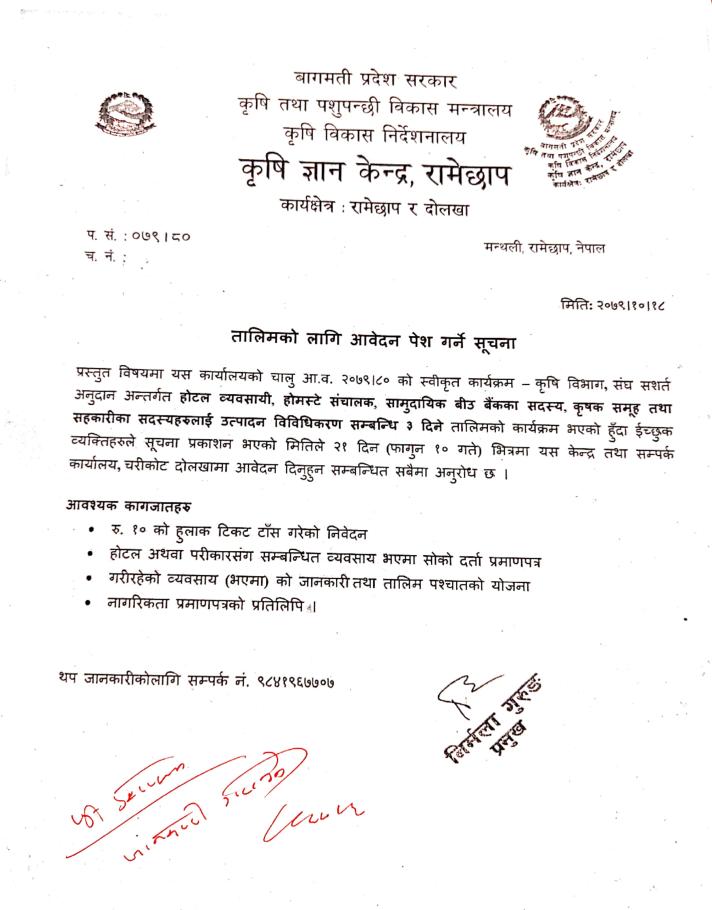 बागमती प्रदेश सरकार
कृषि तथा पशुपन्छी विकास मन्त्रालय
कृषि विकास निर्देशनालय
कृषि ज्ञान केन्द्र, रामेछाप
कार्यक्षेत्र : रामेछाप र दोलखा
बागमती प्रदेश सरकार
कृषि तथा पशुपन्छी विकास मन्त्रालय
कृषि विकास निर्देशनालय
कृषि ज्ञान केन्द्र, रामेछाप
कार्यक्षेत्र: रामेछाप र दोलखा
प. सं. : ०७९।८०
च. नं. :
मन्थली, रामेछाप, नेपाल
मिति: २०७९।१०।१८
तालिमको लागि आवेदन पेश गर्ने सूचना
प्रस्तुत विषयमा यस कार्यालयको चालु आ.व. २०७९।८० को स्वीकृत कार्यक्रम – कृषि विभाग, संघ सशर्त
अनुदान अन्तर्गत होटल व्यवसायी, होमस्टे संचालक, सामुदायिक बीउ बैंकका सदस्य, कृषक समूह तथा
सहकारीका सदस्यहरुलाई उत्पादन विविधिकरण सम्बन्धि ३ दिने तालिमको कार्यक्रम भएको हुँदा ईच्छुक
व्यक्तिहरुले सूचना प्रकाशन भएको मितिले २१ दिन (फागुन १० गते) भित्रमा यस केन्द्र तथा सम्पर्क
कार्यालय, चरीकोट दोलखामा आवेदन दिनुहुन सम्बन्धित सबैमा अनुरोध छ ।
आवश्यक कागजातहरु
• रु. १० को हुलाक टिकट टाँस गरेको निवेदन
• होटल अथवा परीकारसंग सम्बन्धित व्यवसाय भएमा सोको दर्ता प्रमाणपत्र
• गरीरहेको व्यवसाय (भएमा) को जानकारी तथा तालिम पश्चातको योजना
• नागरिकता प्रमाणपत्रको प्रतिलिपि ।
थप जानकारीकोलागि सम्पर्क नं. ९८४१९६७७०७
निर्मला गुरुङ
प्रमुख